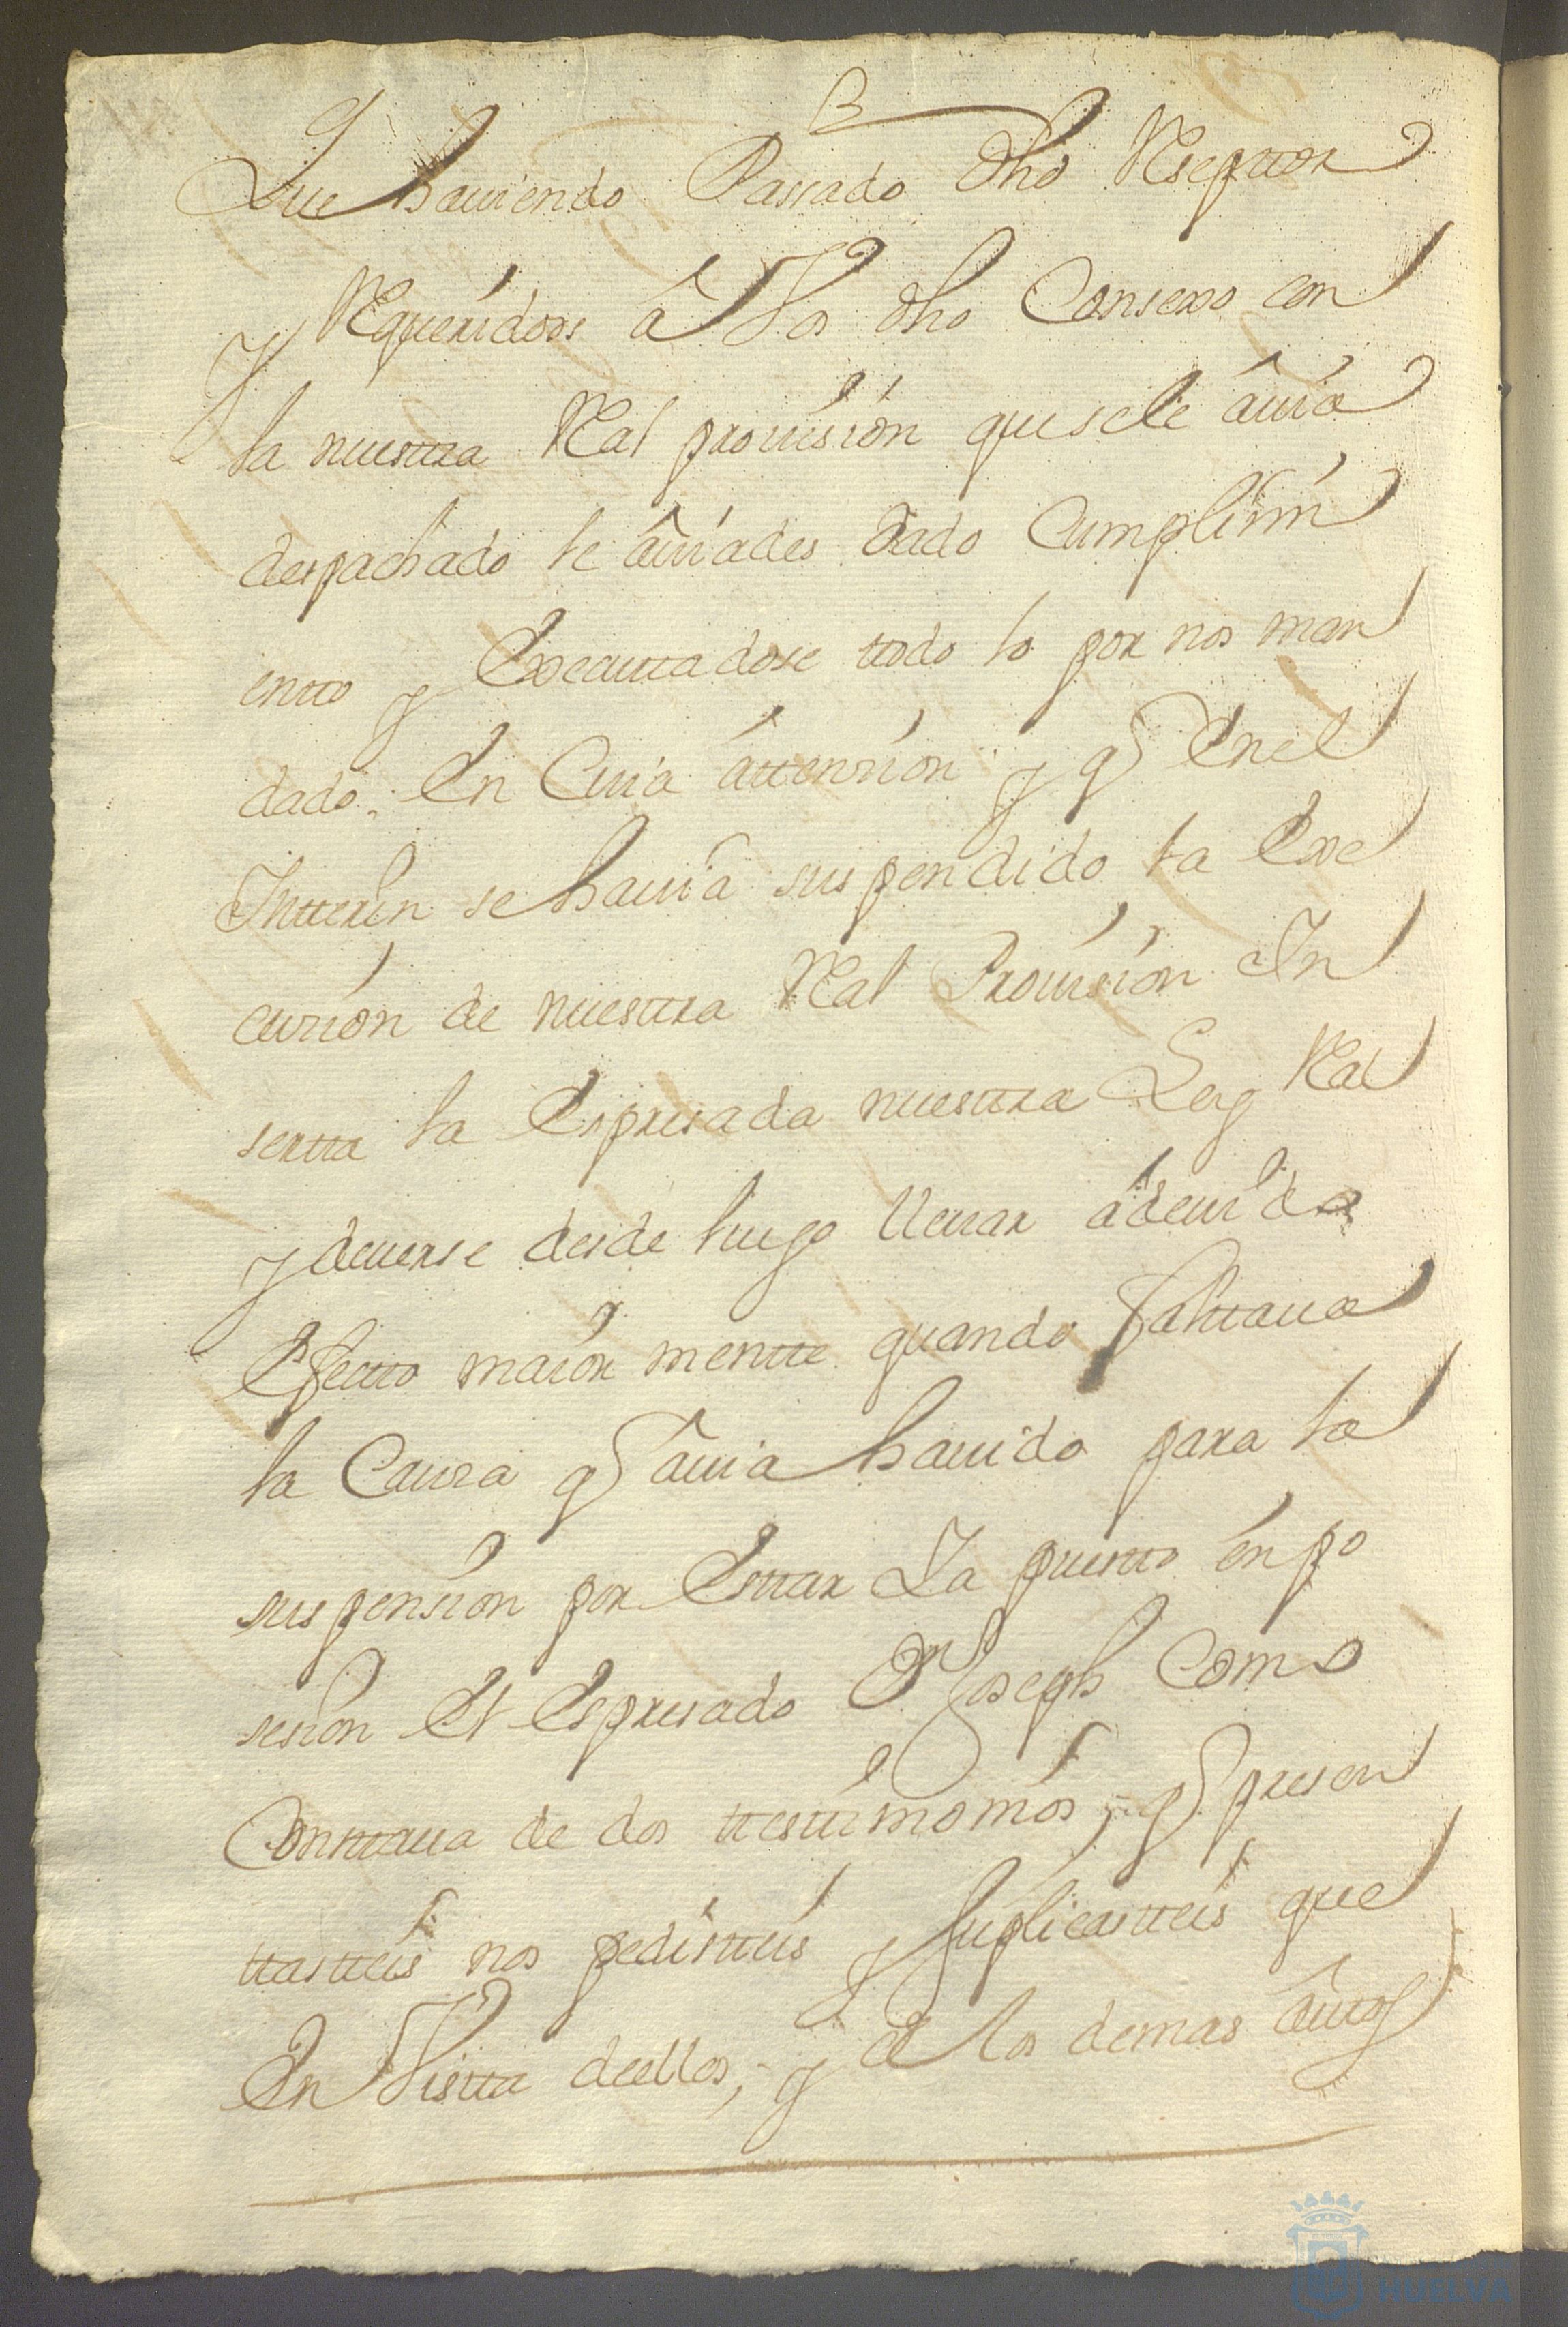 Que hauiendo Passado dho Rseptor
y Rqueridoos â Vos dho Consexo con
la nuestra Ral prouisión que sele âuia
despachado le âuiades dado Cumplimi
entto y Executtadose ttodo lo por nos man
dado; En Cuia áttenzión y q̃ Enel
Intterin se hauia suspendido la Exe
cuzión de nuestra Ral Prouisión In
sertta la Espresada nuestra Ley Ral
y deuerse desde luego lleuar ádeuido
Efectto maior mentte quando faltaua
la Causa q̃ âuia hauido para la
suspensión por Estar Ya puestto én po
sesión El Espresado Dn Joseph Como
Constaua de dos ttesttimonios, q̃ presen
ttastteis nos pedistteis y suplicastteis que
En Vistta deellos, y de los demas âuttos
HUELVA